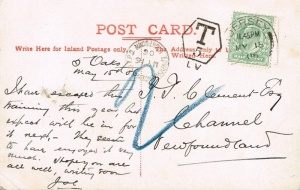 POST CARD.
Write Here for Inland Postage only.
The Address only to be
Written
T
5
JERSEY
MY 15
5 Oaks
May 15th 06
I have escaped this
training this year, but
expect will be in for
it next. They seem
to have enjoyed it very
much. Hope you are
all well, writing soon
Joe
P. T. Clement Esq
Channel
Newfoundland